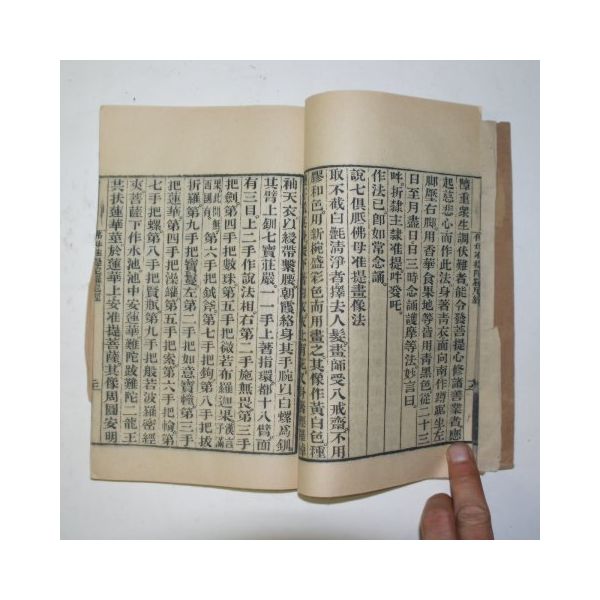 障重衆生調伏難者能令發菩提心修諸善業者應
起慈悲心而作此法身著青衣面向南作蹲踞坐左
脚壓右脚用香華食果地等皆用青黑色從二十三
日至月盡日日三時念誦護摩等法妙言曰
吽折隸主隸准提吽癹吒
作法已卽如常念誦
說七俱胝佛母准提畫像法
取不截白㲲淸淨者擇去人髮畫師受八戒齋不用
膠和色用新椀盛彩色而用畫之其像作黃白色種
袖天衣以綬帶繫腰朝霞絡身其手腕以白螺爲釧
其臂上釧七寶莊嚴一一手上著指環都十八臂面
有三目上二手作說法相右第二手施無畏第三手
把劍第四手把數珠第五手把微若布羅迦果漢言子滿
果此間無西國有第六手把鉞斧第七手把鉤第八手把拔
折羅第九手把寶鬘左第二手把如意寶幢第三手
把蓮華第四手把澡罐第五手把索第六手把輪第
七手把螺第八手把賢瓶第九手把般若波羅蜜經
夾菩薩下作水池池中安蓮華難陀跋難陀二龍王
共扶蓮華莖於蓮華上安准提菩薩其像周圓安明